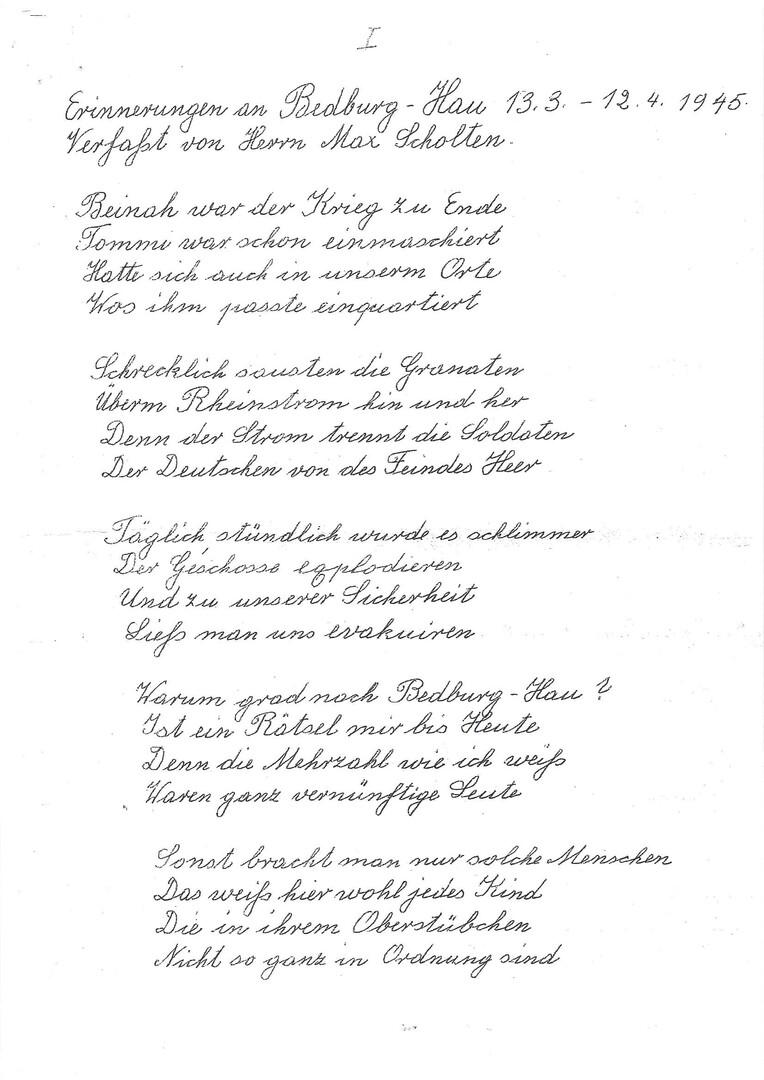 I
Erinnerungen an Bedburg-Hau 13.3. - 12.4. 1945.
Verfaßt von Herrn Max Scholten.
Beinah war der Krieg zu Ende
Tommi war schon einmaschiert
Hatte sich auch in unserm Orte
Wos ihm passte einquartiert
Schrecklich sausten die Granaten
Überm Rheinstrom hin und her
Denn der Strom trennt die Soldaten
Der Deutschen von des Feindes Heer
Täglich, stündlich wurde es schlimmer
Der Geschosse egplodieren
Und zu unserer Sicherheit
Ließ man uns evakuiren
Warum grad nach Bedburg-Hau?
Ist ein Rätsel mir bis Heute
Denn die Mehrzahl wie ich weiß
Waren ganz vernünftige Leute
Sonst bracht man nur solche Menschen
Das weiß hier wohl jedes Kind
Die in ihrem Oberstübchen
Nicht so ganz in Ordnung sind